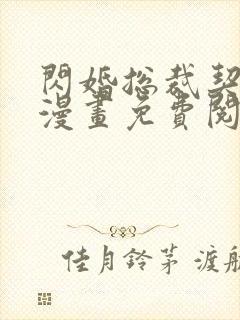 閃婚總裁契
漫畫免費閱
佳月鈴茅 渡航